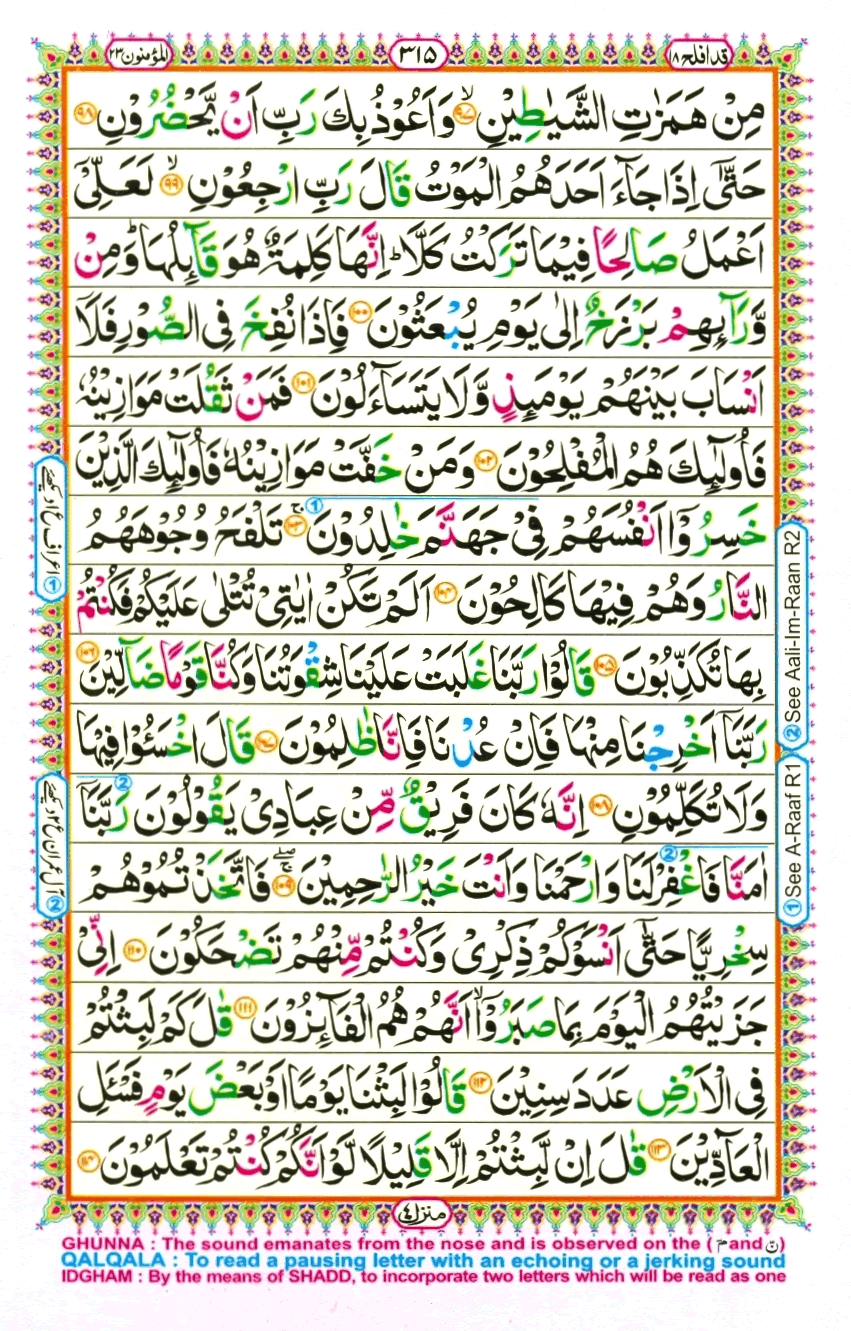 المؤمنون ۲۳
۳۱۵
قد افلح ۱۸
مِنْ هَمَزٰتِ الشَّيٰطِيْنِ ۙ‏﴿۹۷﴾ وَاَعُوْذُ بِكَ رَبِّ اَنْ يَّحْضُرُوْنِ ﴿۹۸﴾
حَتّٰٓى اِذَا جَآءَ اَحَدَهُمُ الْمَوْتُ قَالَ رَبِّ ارْجِعُوْنِ ۙ‏﴿۹۹﴾ لَعَلِّىْٓ
اَعْمَلُ صَالِحًا فِيْمَا تَرَكْتُ كَلَّا ؕ اِنَّهَا كَلِمَةٌ هُوَ قَآئِلُهَا ؕ وَمِنْ
وَّرَآئِهِمْ بَرْزَخٌ اِلٰى يَوْمِ يُبْعَثُوْنَ ﴿۱۰۰﴾ فَاِذَا نُفِخَ فِى الصُّوْرِ فَلَاۤ
اَنْسَابَ بَيْنَهُمْ يَوْمَئِذٍ وَّلَا يَتَسَآءَلُوْنَ ﴿۱۰۱﴾ فَمَنْ ثَقُلَتْ مَوَازِيْنُهٗ
فَاُولٰٓئِكَ هُمُ الْمُفْلِحُوْنَ ﴿۱۰۲﴾ وَمَنْ خَفَّتْ مَوَازِيْنُهٗ فَاُولٰٓئِكَ الَّذِيْنَ
خَسِرُوْۤا اَنْفُسَهُمْ فِىْ جَهَنَّمَ خٰلِدُوْنَ ۚ‏﴿۱۰۳﴾ تَلْفَحُ وُجُوْهَهُمُ
النَّارُ وَهُمْ فِيْهَا كَالِحُوْنَ ﴿۱۰۴﴾ اَلَمْ تَكُنْ اٰيٰتِىْ تُتْلٰى عَلَيْكُمْ فَكُنْتُمْ
بِهَا تُكَذِّبُوْنَ ﴿۱۰۵﴾ قَالُوْا رَبَّنَا غَلَبَتْ عَلَيْنَا شِقْوَتُنَا وَكُنَّا قَوْمًا ضَآلِّيْنَ ﴿۱۰۶﴾
رَبَّنَاۤ اَخْرِجْنَا مِنْهَا فَاِنْ عُدْنَا فَاِنَّا ظٰلِمُوْنَ ﴿۱۰۷﴾ قَالَ اخْسَئُوْا فِيْهَا
وَلَا تُكَلِّمُوْنِ ﴿۱۰۸﴾ اِنَّهٗ كَانَ فَرِيْقٌ مِّنْ عِبَادِىْ يَقُوْلُوْنَ رَبَّنَاۤ
اٰمَنَّا فَاغْفِرْ لَنَا وَارْحَمْنَا وَاَنْتَ خَيْرُ الرّٰحِمِيْنَ ۖۚ‏﴿۱۰۹﴾ فَاتَّخَذْتُمُوْهُمْ
سِخْرِيًّا حَتّٰٓى اَنْسَوْكُمْ ذِكْرِىْ وَكُنْتُمْ مِّنْهُمْ تَضْحَكُوْنَ ﴿۱۱۰﴾ اِنِّىْ
جَزَيْتُهُمُ الْيَوْمَ بِمَا صَبَرُوْۤا ۙ اَنَّهُمْ هُمُ الْفَآئِزُوْنَ ﴿۱۱۱﴾ قٰلَ كَمْ لَبِثْتُمْ
فِى الْاَرْضِ عَدَدَ سِنِيْنَ ﴿۱۱۲﴾ قَالُوْا لَبِثْنَا يَوْمًا اَوْ بَعْضَ يَوْمٍ فَسْئَلِ
الْعَآدِّيْنَ ﴿۱۱۳﴾ قٰلَ اِنْ لَّبِثْتُمْ اِلَّا قَلِيْلًا لَّوْ اَنَّكُمْ كُنْتُمْ تَعْلَمُوْنَ ﴿۱۱۴﴾
① اعراف ع ۱ دیکھئے
② آل عمران ع ۲ دیکھئے
② See Aali-Im-Raan R2
① See A-Raaf R1
منزل ٤
GHUNNA : The sound emanates from the nose and is observed on the ( مّ and نّ )
QALQALA : To read a pausing letter with an echoing or a jerking sound
IDGHAM : By the means of SHADD, to incorporate two letters which will be read as one